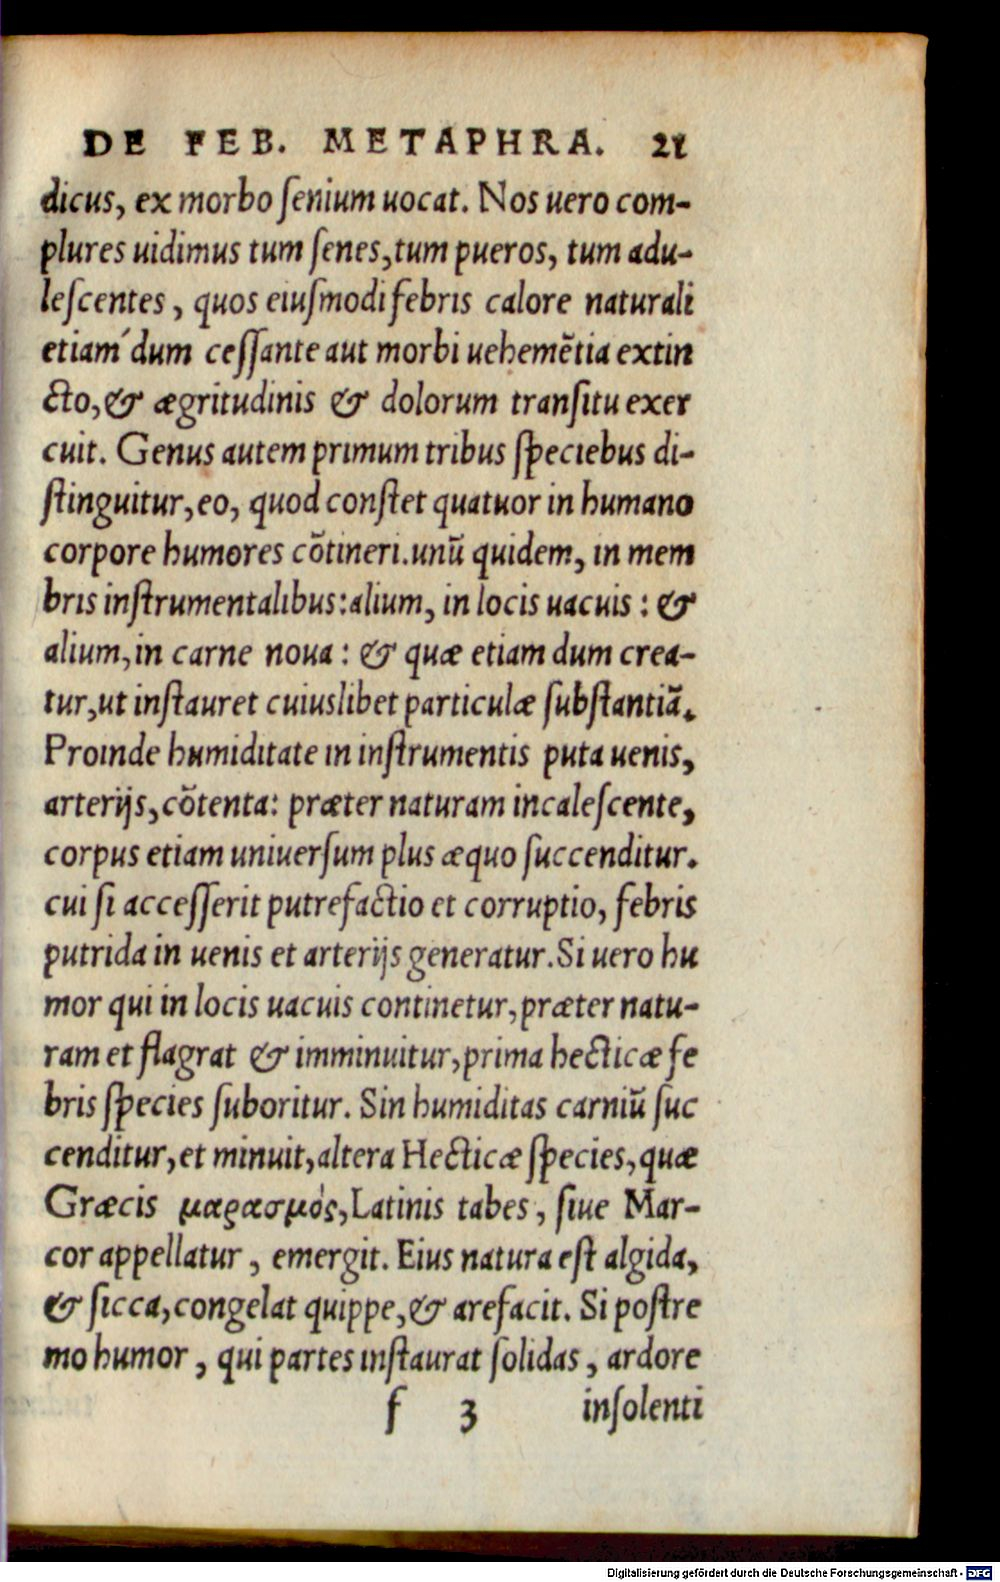 DE FEB. METAPHRA. 21
dicus, ex morbo ſenium uocat. Nos uero com-
plures uidimus tum ſenes, tum pueros, tum adu-
leſcentes, quos eiuſmodi febris calore naturali
etiam´dum ceſſante aut morbi uehemẽtia extin
cto, & ægritudinis & dolorum tranſitu exer
cuit. Genus autem primum tribus ſpeciebus di-
ſtinguitur, eo, quod conſtet quatuor in humano
corpore humores cõtineri. unũ quidem, in mem
bris inſtrumentalibus: alium, in locis uacuis: &
alium, in carne noua: & quæ etiam dum crea-
tur, ut inſtauret cuiuslibet particulæ ſubſtantiã.
Proinde humiditate in inſtrumentis puta uenis,
arterijs, cõtenta: præter naturam incaleſcente,
corpus etiam uniuerſum plus æquo ſuccenditur.
cui ſi acceſſerit putrefactio et corruptio, febris
putrida in uenis et arterijs generatur. Si uero hu
mor qui in locis uacuis continetur, præter natu-
ram et flagrat & imminuitur, prima hecticæ fe
bris ſpecies ſuboritur. Sin humiditas carniũ ſuc
cenditur, et minuit, altera Hecticæ ſpecies, quæ
Græcis μαρασμὸς, Latinis tabes, ſiue Mar-
cor appellatur, emergit. Eius natura eſt algida,
& ſicca, congelat quippe, & arefacit. Si poſtre
mo humor, qui partes inſtaurat ſolidas, ardore
f 3 inſolenti
Digitalisierung gefördert durch die Deutsche Forschungsgemeinschaft - DFG